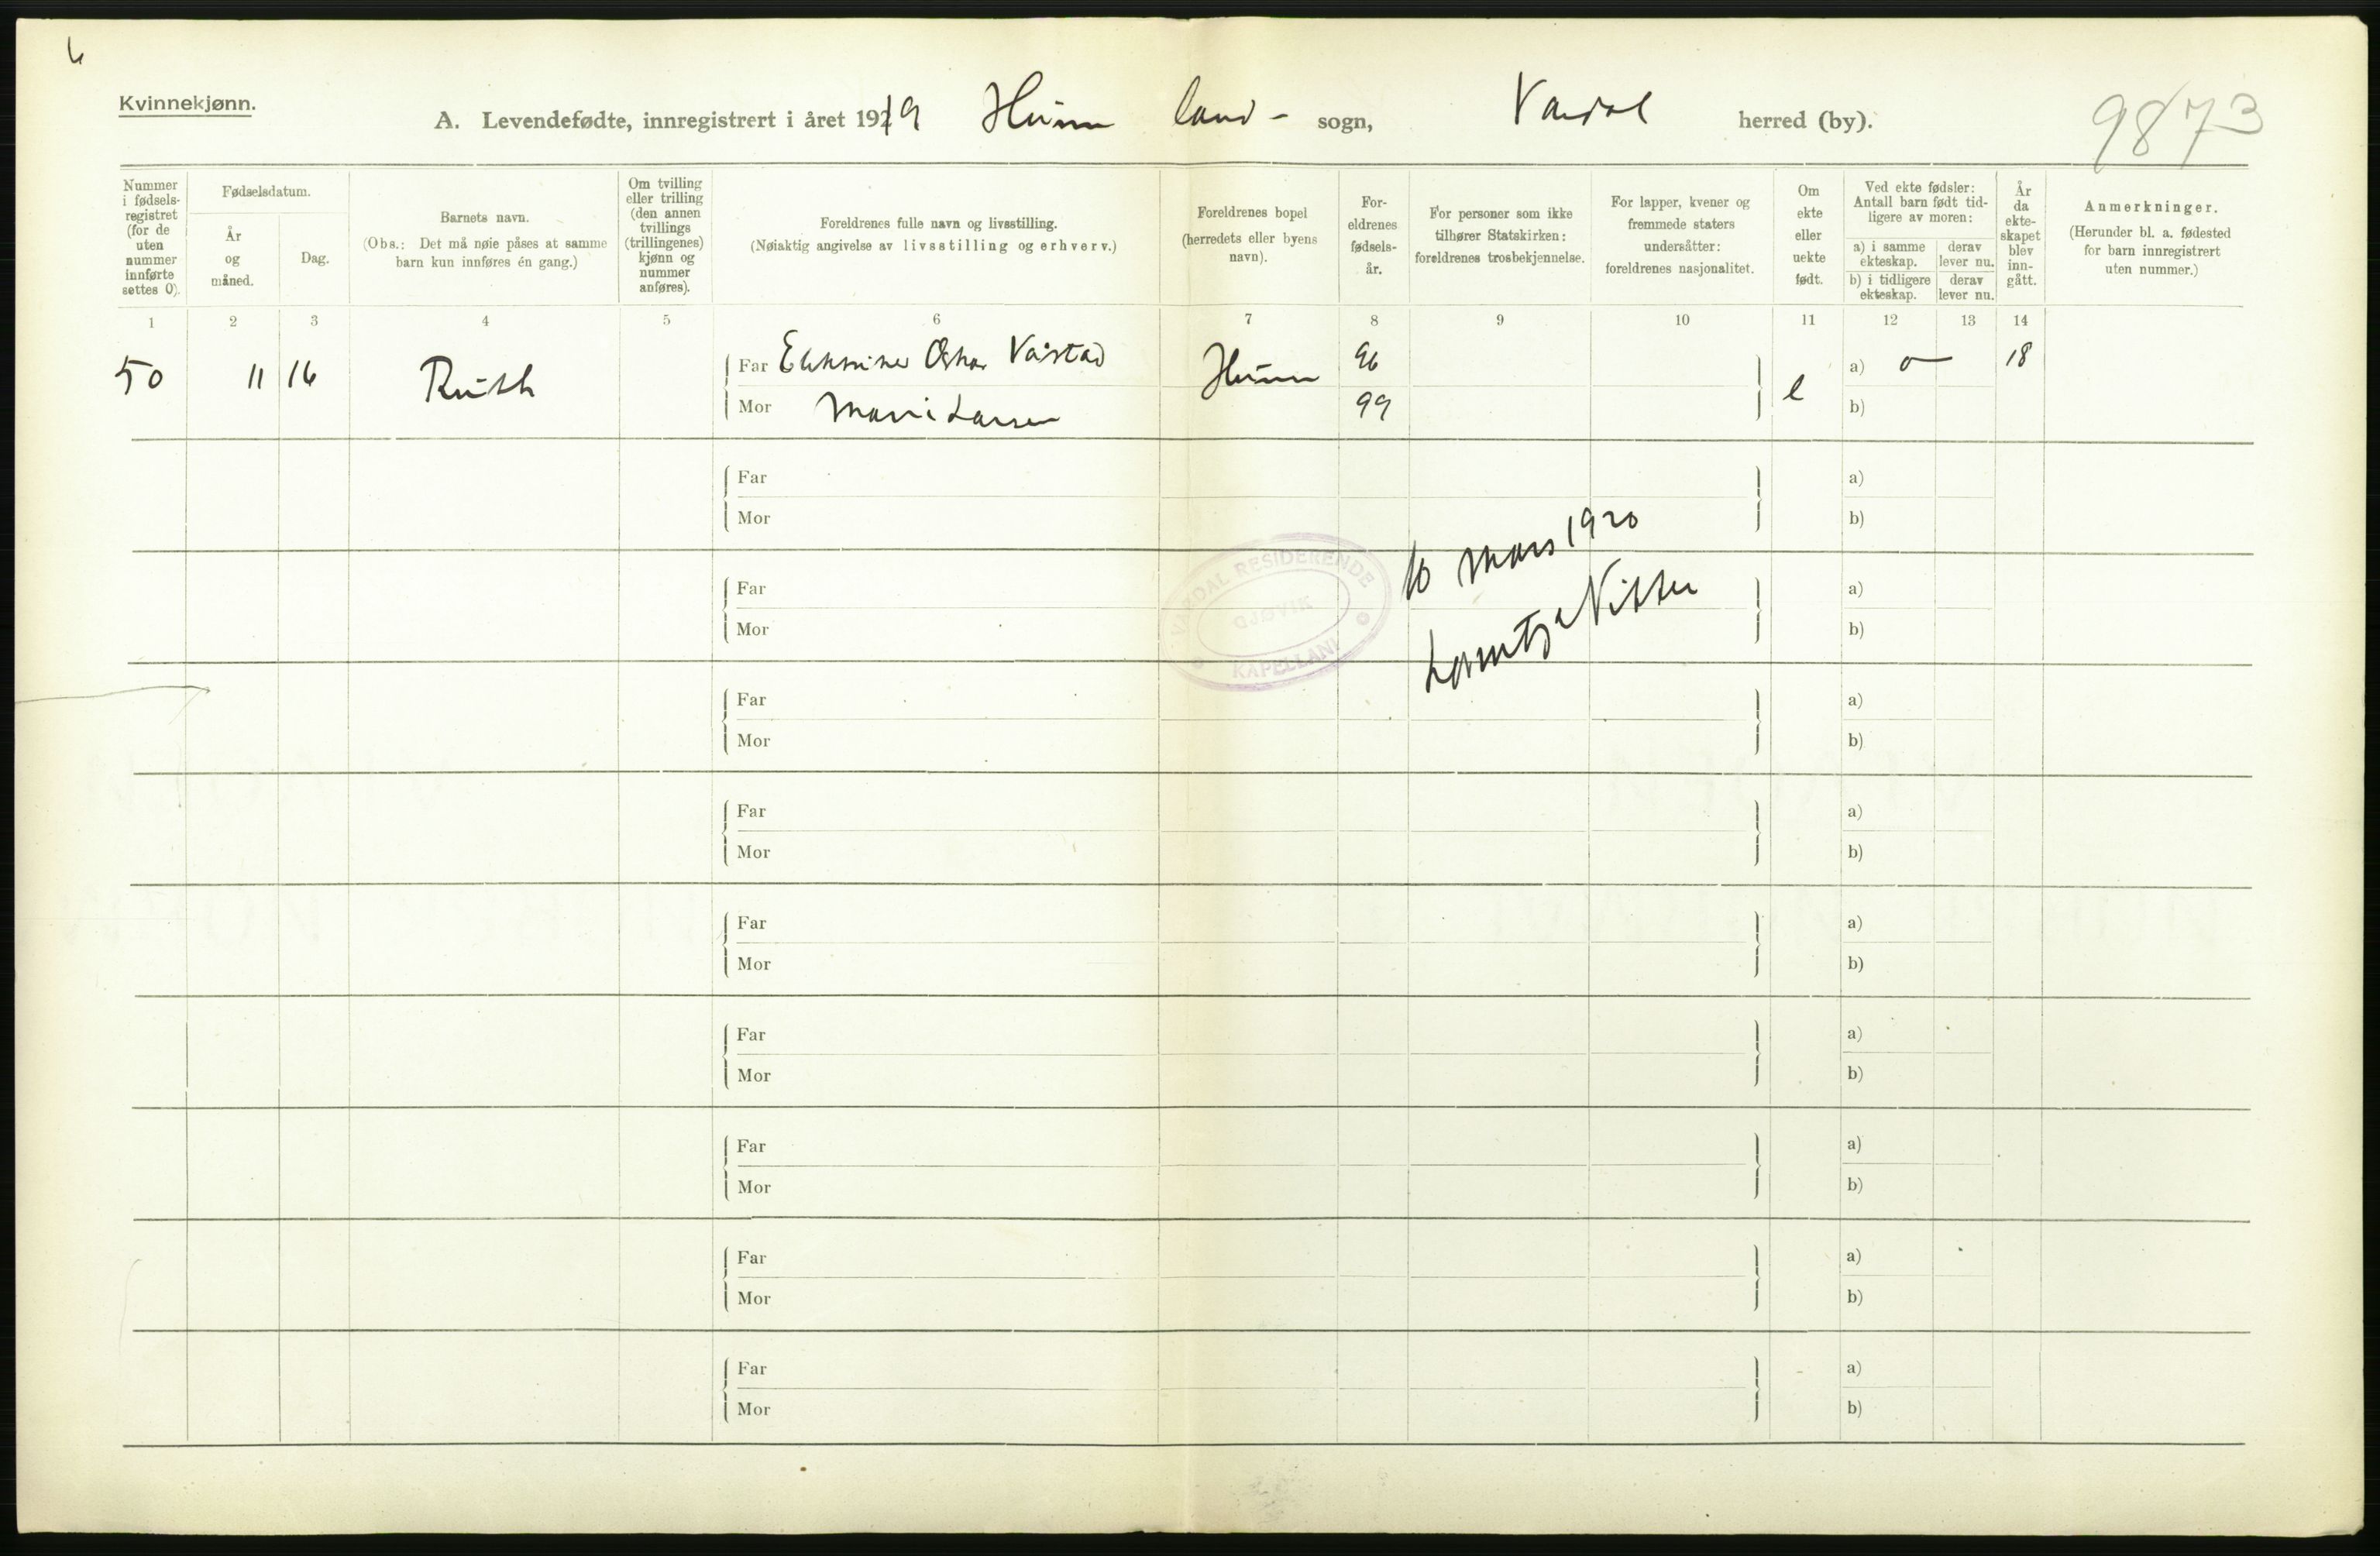 6
Kvinnekjønn.
A. Levendefødte, innregistrert i året 1919 Hunn land- sogn, Vardal herred (by).
9873
Nummer i fødselsregistret (for de uten nummer innførte settes 0).
Fødselsdatum.
År og måned.
Dag.
Barnets navn.
(Obs.: Det må nøie påses at samme barn kun innføres én gang.)
Om tvilling eller trilling (den annen tvillings (trillingenes) kjønn og nummer anføres).
Foreldrenes fulle navn og livsstilling.
(Nøiaktig angivelse av livsstilling og erhverv.)
Foreldrenes bopel (herredets eller byens navn).
For-eldrenes fødsels-år.
For personer som ikke tilhører Statskirken: foreldrenes trosbekjennelse.
For lapper, kvener og fremmede staters undersåtter: foreldrenes nasjonalitet.
Om ekte eller uekte født.
Ved ekte fødsler: Antall barn født tid-ligere av moren:
a) i samme ekteskap.
derav lever nu.
b) i tidligere ekteskap.
derav lever nu.
År da ekte-skapet blev inn-gått.
Anmerkninger.
(Herunder bl. a. fødested for barn innregistrert uten nummer.)
1 2 3 4 5 6 7 8 9 10 11 12 13 14
50 11 16 Ruth Far Oskar Hunn 96 e a) 0 18
Mor Marie Larsen 99 b)
Far a)
Mor b)
10 mars 1920
Far a)
Mor b)
VARDAL RESIDERENDE
GJØVIK
KAPELLANI
Lorentz Nissen
Far a)
Mor b)
Far a)
Mor b)
Far a)
Mor b)
Far a)
Mor b)
Far a)
Mor b)
Far a)
Mor b)
Far a)
Mor b)